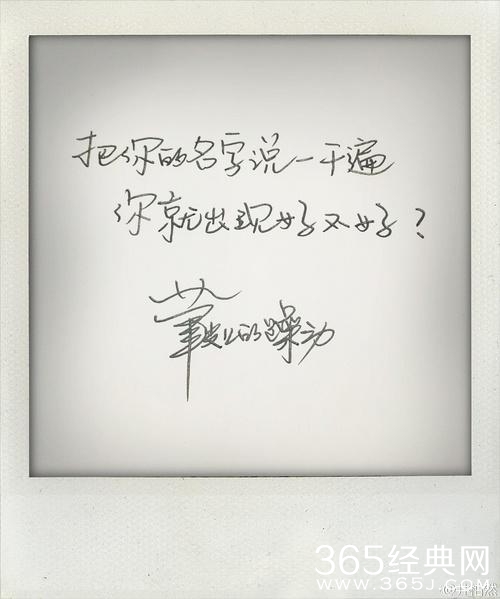 把你的名字说一千遍
你就出现好不好？
的躁动
365经典网
www.365J.COM
@井柏然